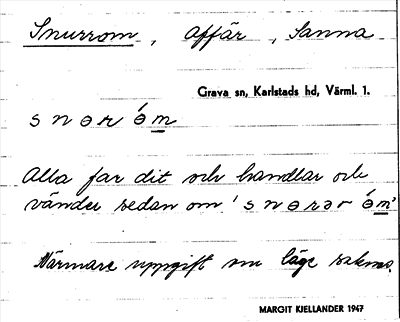 Snurrom, Affär, Sanna
Grava sn, Karlstads hd, Värml. 1.
s n ɵ r ó m
Alla far dit och handlar och
vänder sedan om 's n ɵ r ə r ó m'
Närmare uppgift om läge saknas.
MARGIT KJELLANDER 1947